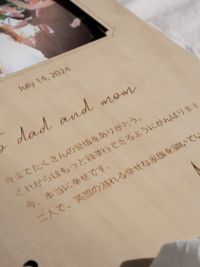 July 14, 2024
dad and mom
今までたくさんの愛情をありがとう。
これからはもっと親孝行できるようにがんばります
今、本当に幸せです。
二人で、笑顔の溢れる幸せな家庭を築いてい